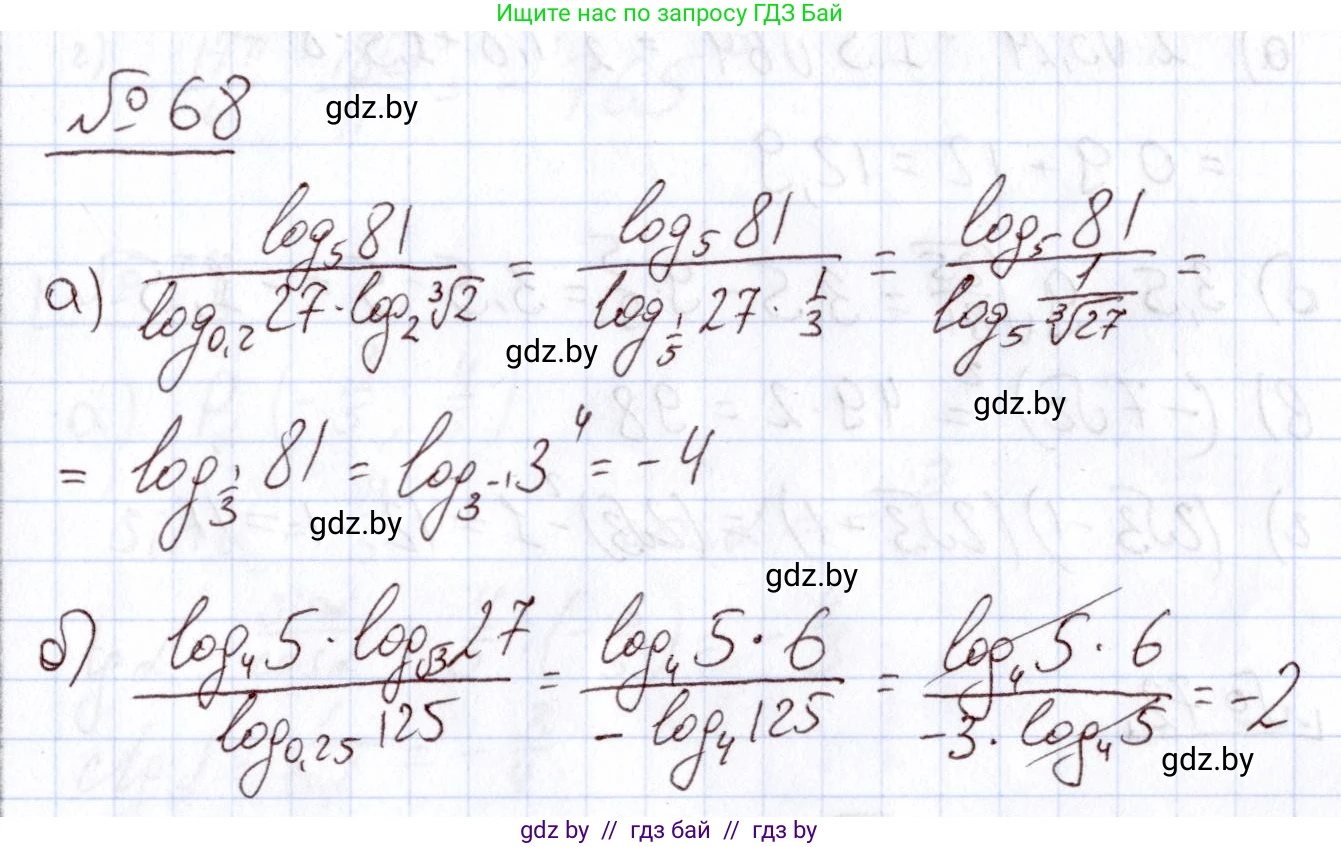 Ищите нас по запросу ГДЗ Бай
№ 68 gdz.by
а) \frac{log_5 81}{log_{0,2} 27 · log_2 ∛2} = \frac{log_5 81}{log_{\frac{1}{5}} 27 · \frac{1}{3}} = \frac{log_5 81}{log_5 \frac{1}{∛27}} =
gdz.by
gdz.by
= log_{\frac{1}{3}} 81 = log_{3^{-1}} 3^4 = -4
gdz.by
gdz.by
б) \frac{log_4 5 · log_{√3} 27}{log_{0,25} 125} = \frac{log_4 5 · 6}{- log_4 125} = \frac{log_4 5 · 6}{-3 · log_4 5} = -2
gdz.by
gdz by // гдз бай // гдз by